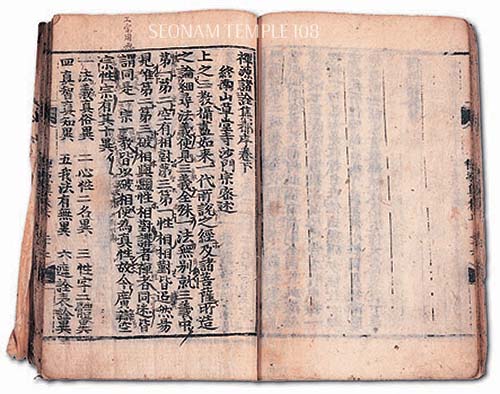 SEONAM TEMPLE 108
禪源諸詮集都序卷下
終南山草堂寺沙門宗密述
上之三教攝盡如來一代所說之經及諸菩薩所造
之論細尋法義便見三義全殊一法無別就三義中
第一第二空有相對第三第一性相相對皆迢然易
見唯第二第三破相與顯性相對講者禪者同迷皆
謂同是一宗一教皆以破相便為真性故今廣辨空
宗性宗有其十異
一法義真俗異 二心性二名異 三性字二體異
四真智真知異 五我法有無異 六遮詮表詮異